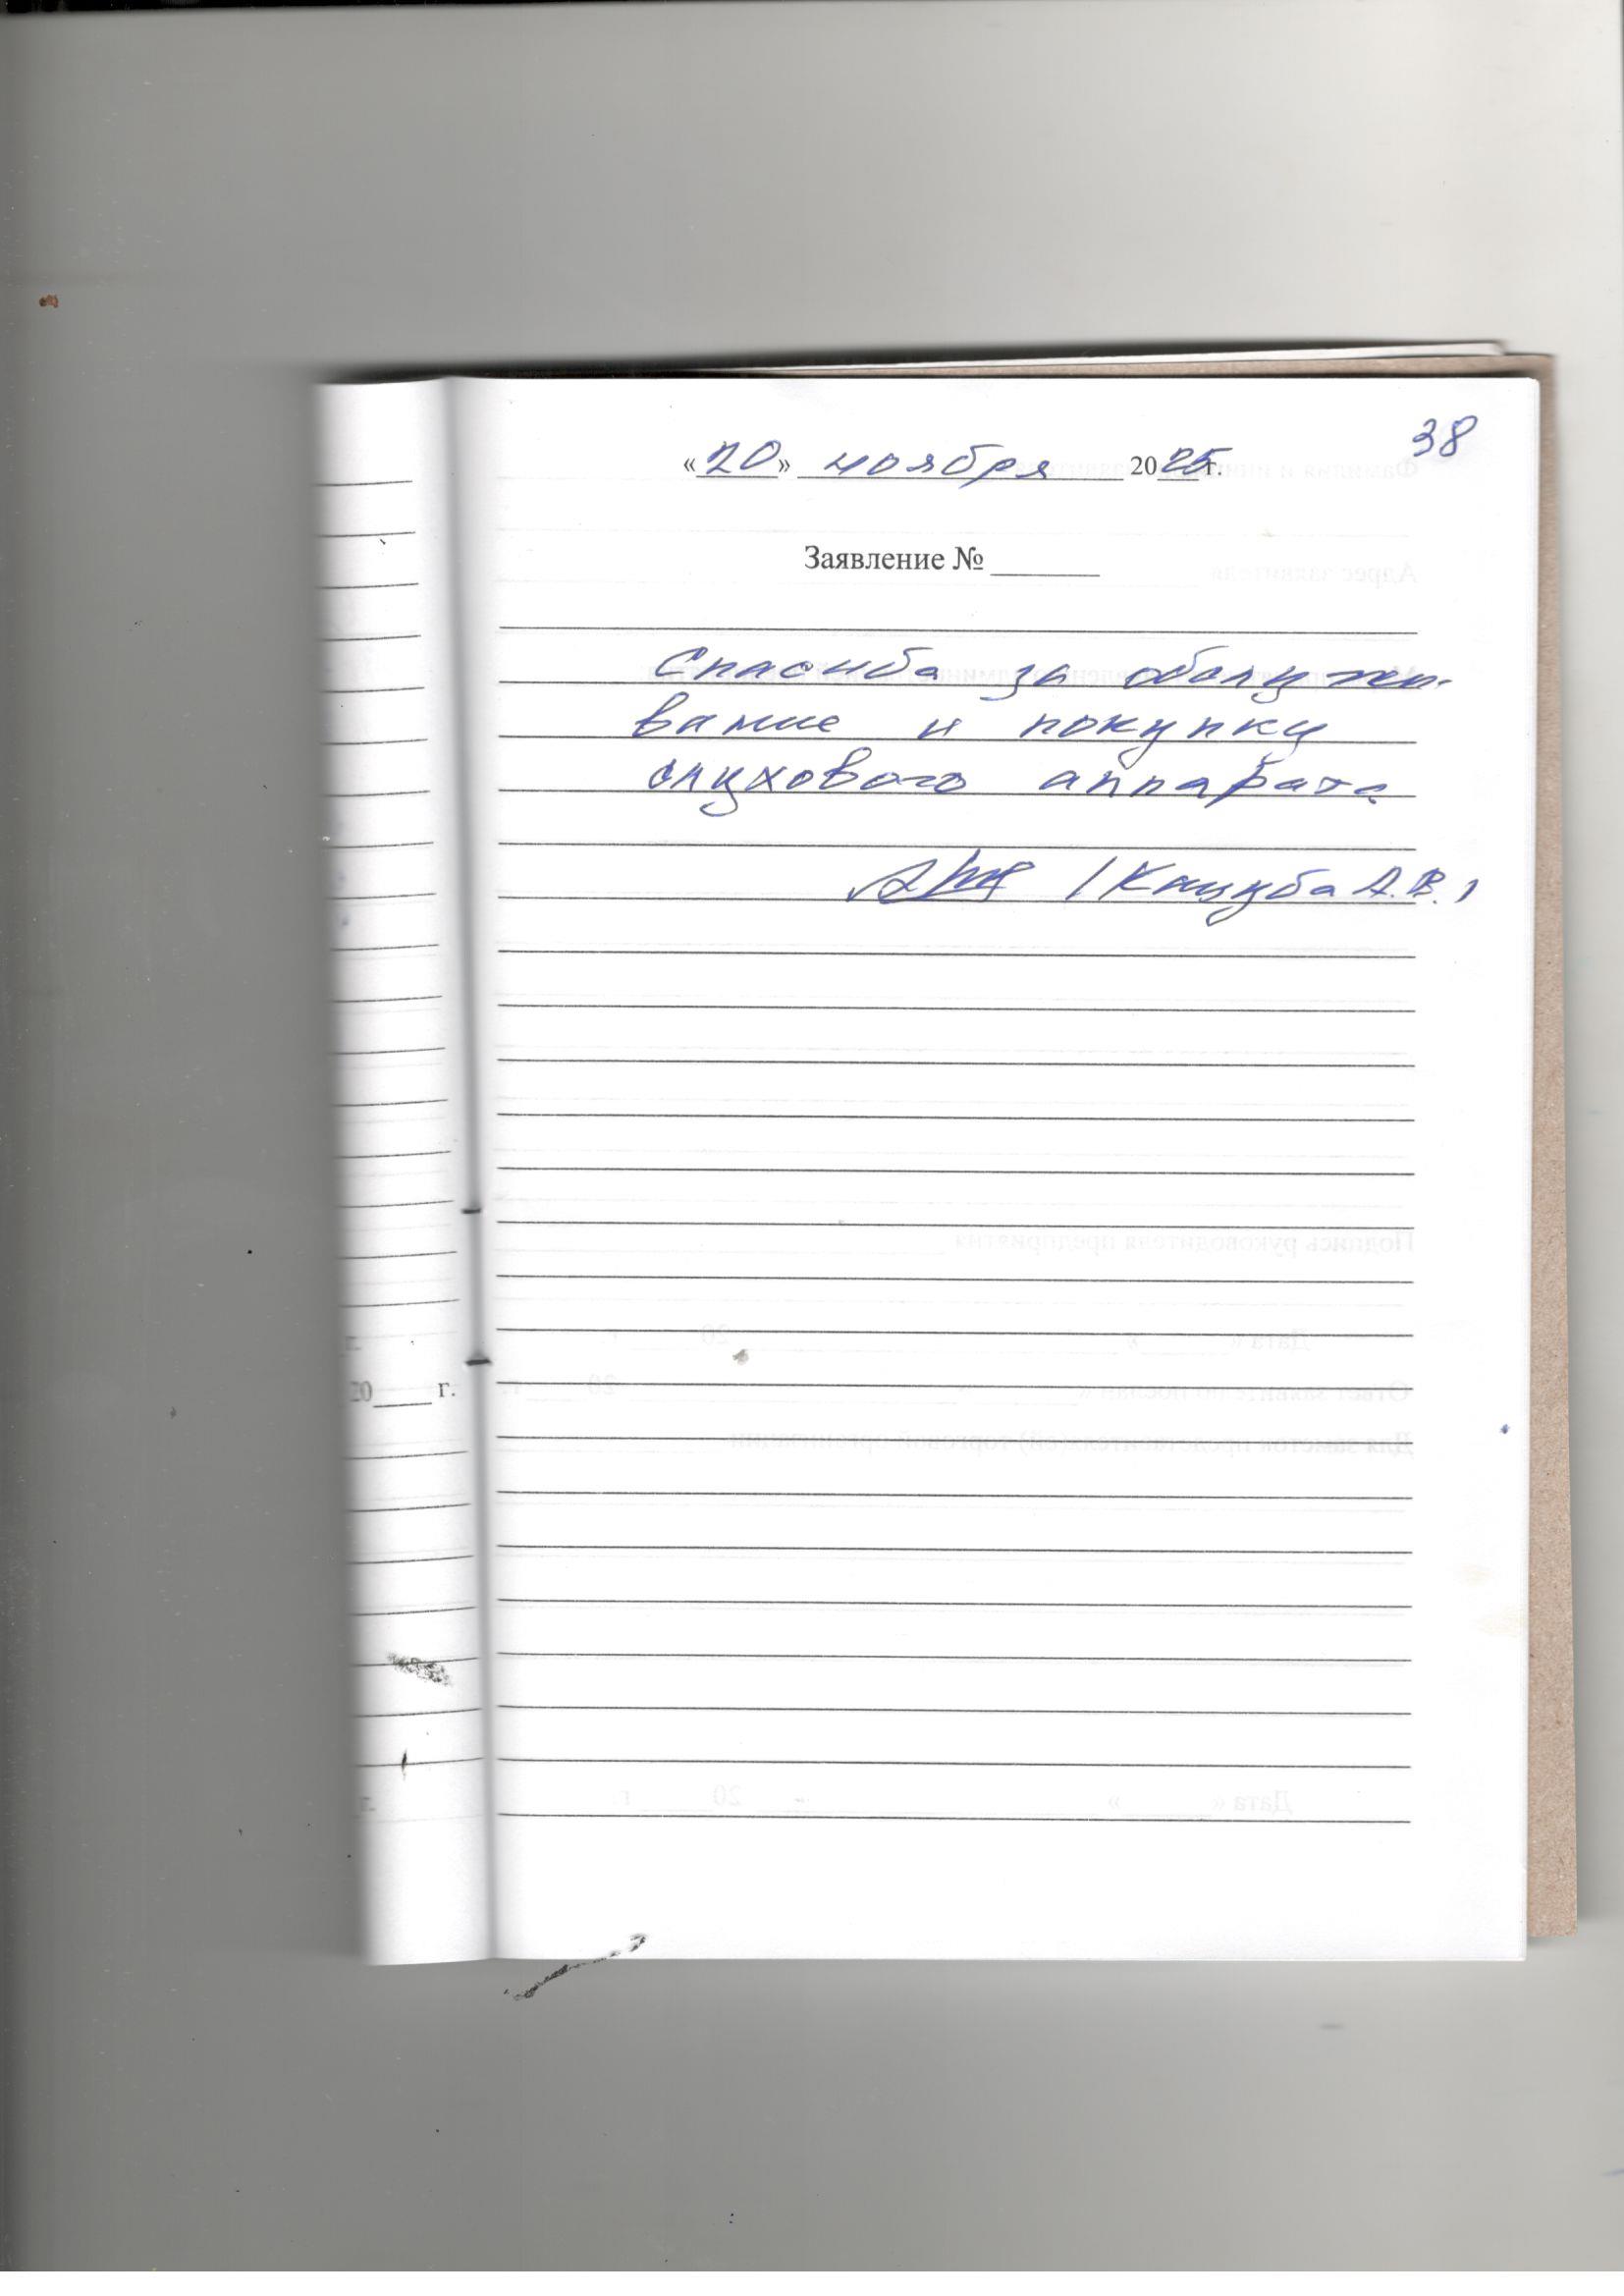 38
«20» ноября 2025г.
Заявление № ____
Спасиба за обслужи-
вание и покупку
слухового аппарата
/Кацуба А.В./
20____ г.